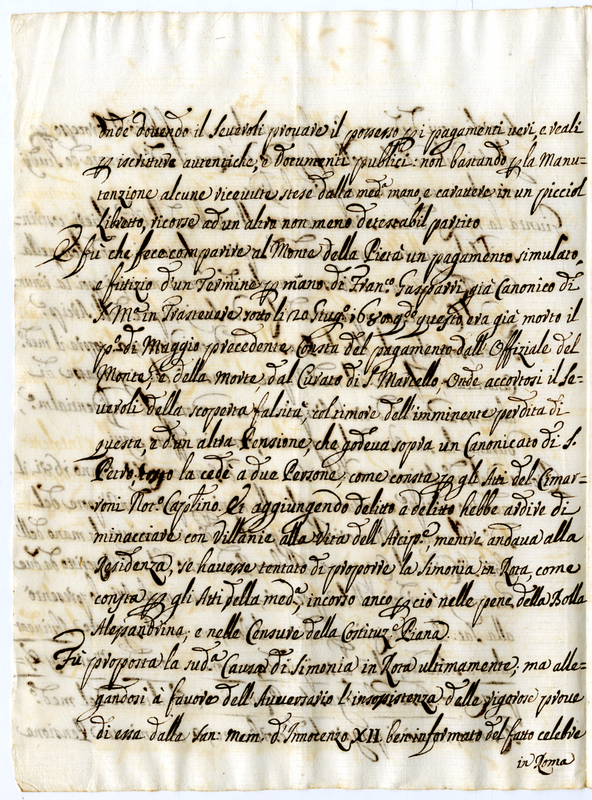 onde dovendo il Severoli provare il possesso p i pagamenti veri, e reali
p iscritture autentiche, e documenti publici: non bastando p la Manu=
tenzione alcune ricevute stese dalla med.a mano, e carattere in un picciol
Libretto, ricorse ad un altro non meno detestabil partito
E fù che fece comparire al Monte della Pietà un pagamento simulato,
e fittizio d'un Termine p mano di Fran.co Gasparri, già Canonico di
S. M.a in Trastevere sotto li 20 Giug.o 1680 q.do questo era già morto il
p.o di Maggio precedente. Consta del pagamento dall'Offiziale del
Monte, e della morte dal Curato di S. Marcello, Onde accortosi il Se=
veroli della scoperta falsità, col timore dell'imminente perdita di
questa, e d'un altra Pensione, che godeva sopra un Canonicato di S.
Pietro, la cedè a due Persone, come consta p gli Atti del Cimar=
roni Not.o Caplino. Et aggiungendo delitto a delitto hebbe ardire di
minacciare con Villanie alla Vita dell'Arcip.e, mentre andava alla
Residenza, se havesse tentato di proporre la Simonia in Rota, come
consta p gli Atti della med.a, incorso anco p ciò nelle pene della Bolla
Alessandrina, e nelle Censure della Costituz.e Piana.
Fù proposta la sud.a Causa di Simonia in Rota ultimamente, ma alle=
gandosi à favore dell'Avversario l'insossistenza delle vigorose prove
di essa dalla San: Mem: d'Innocenzo XII ben informato del fatto celebre
in Roma